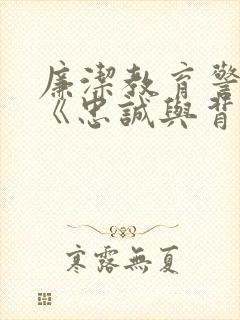 廉潔教育警
《忠誠與背
寒露無夏